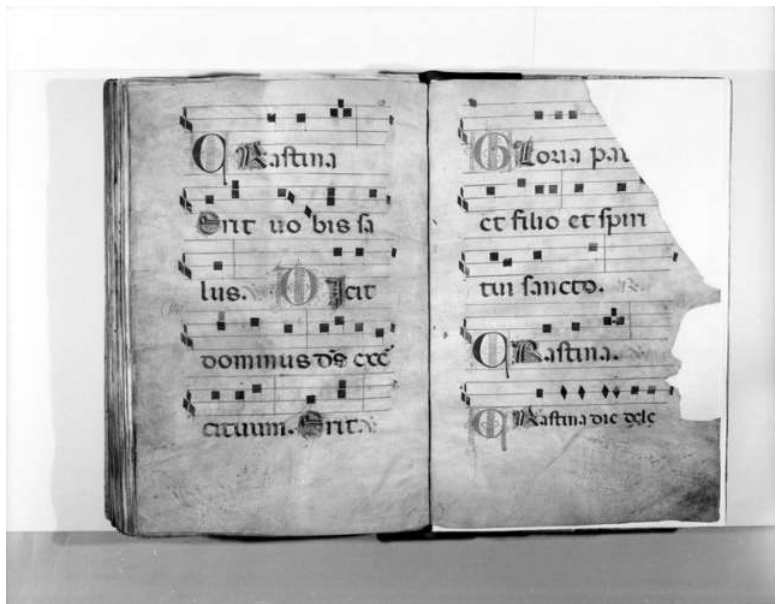 CRastina
Erit uo bis sa
lus. DIcit
dominus ds exer
cituum. Erit.
GLoria pat
et filio et spiri
tui sancto.
CRastina.
CRastina die dele